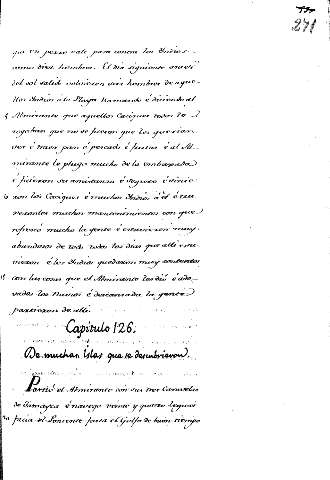 271
que un perro vale para contra los Indios
como diez hombres. El dia siguiente antes
del sol salido volvieron seis hombres de aque-
llos Indios a la Playa llamando é diciendo al
Almirante que aquellos Caciques todos le
rogaban que no se fuesen que los querian
ver é traer pan é pescado é frutas é al Al-
mirante le plugo mucho de la embaxada
é ficieron su amistanza é seguro é vinie-
ron los Caciques é muchos Indios á él é tru-
xeronles muchos mantenimientos con que
refrescó mucho la gente é estuvieron muy
abundosos de todo todos los dias que alli estu-
vieron é los Indios quedaron muy contentos
con las cosas que el Almirante les dió é ado-
vados los Navios é descansada la gente
partieron de alli.
Capitulo 126.
De muchas islas que se descubrieron.
Partió el Almirante con sus tres Caravelas
de Jamayca é navegó veinte y quatro leguas
facia el Poniente fasta el Golfo de buen tiempo